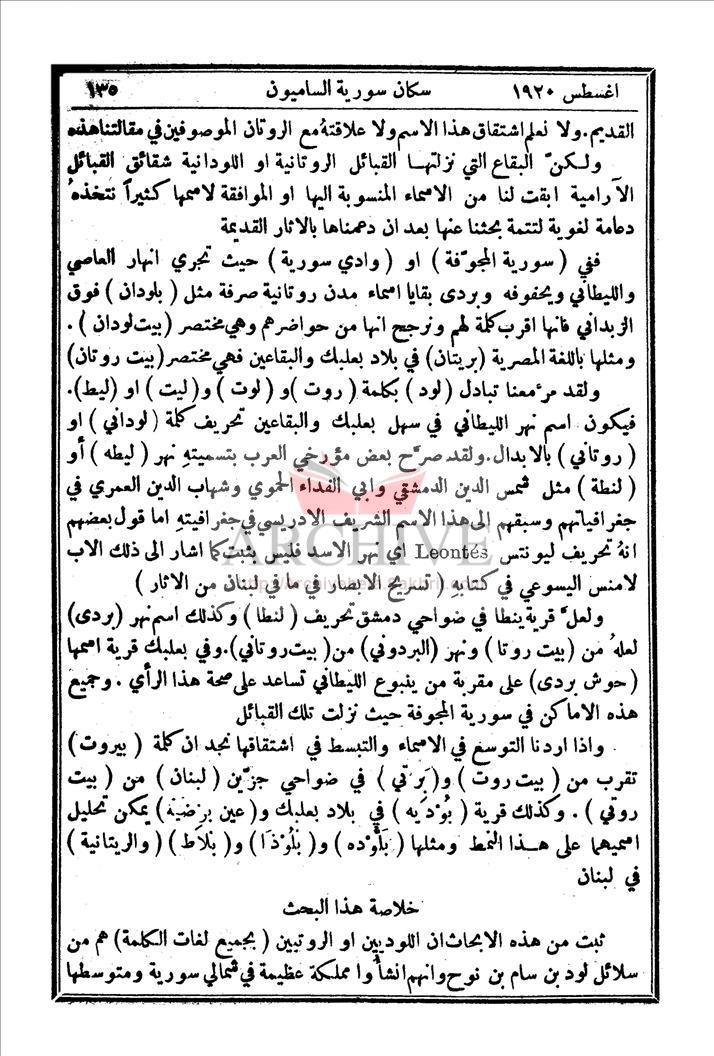 اغسطس ١٩٢٠ سكان سورية الساميون ١٣٥
القديم. ولا نعلم اشتقاق هذا الاسم ولا علاقتهُ مع الروتان الموصوفين في مقالتنا هذه
ولكنّ البقاع التي نزلتها القبائل الروتانية او اللودانية شقائق القبائل
الآرامية ابقت لنا من الاسماء المنسوبة اليها او الموافقة لاسمها كثيراً نتخذهُ
دعامة لغوية لتتمة بحثنا عنها بعد ان دعمناها بالاثار القديمة
ففي ( سورية المجوّفة ) او ( وادي سورية ) حيث تجري انهار العاصي
والليطاني ويحفوفه وبردى بقايا اسماء مدن روتانية صرفة مثل ( بلودان ) فوق
الزبداني فانها اقرب كلمة لهم ونرجح انها من حواضرهم وهي مختصر ( بيت لودان ) .
ومثلها باللغة المصرية ( بريتان) في بلاد بعلبك والبقاعين فهي مختصر (بيت روتان)
ولقد مرّ معنا تبادل ( لود ) بكلمة ( روت ) و ( لوت ) و( ليت ) او ( ليط).
فيكون اسم نهر الليطاني في سهل بعلبك والبقاعين تحريف كلمة ( لوداني ) او
( روتاني ) بالابدال. ولقد صرّح بعض مؤرخي العرب بتسميتهِ نهر ( ليطه ) أو
( لنطة ) مثل شمس الدين الدمشقي وابي الفداء الحموي وشهاب الدين العمري في
جغرافياتهم وسبقهم الى هذا الاسم الشريف الادريسي في جغرافيتهِ اما قول بعضهم
انهُ تحريف ليونتس Leontés اي نهر الاسد فليس يثبت كما اشار الى ذلك الاب
لامنس اليسوعي في كتابهِ ( تسريح الابصار في ما في لبنان من الاثار )
ولعلّ قرية ينطا في ضواحي دمشق تحريف ( لنطا ) وكذلك اسم نهر (بردى)
لعلهُ من ( بيت روتا ) ونهر (البردوني) من ( بيت روتاني). وفي بعلبك قرية اسمها
(حوش بردى) على مقربة من ينبوع الليطاني تساعد على صحة هذا الرأي . وجميع
هذه الاماكن في سورية المجوفة حيث نزلت تلك القبائل
واذا اردنا التوسع في الاسماء والتبسط في اشتقاقها نجد ان كلمة ( بيروت )
تقرب من ( بيت روت ) و( برتي ) في ضواحي جزّين ( لبنان ) من ( بيت
روتي ) . وكذلك قرية ( بُوْدَيه ) في بلاد بعلبك و( عين برضيه ) يمكن تحليل
اسميهما على هذا النمط ومثلها ( بَلُّوْده ) و( بلُوْذا ) و( بلاط ) ( والريتانية )
في لبنان
خلاصة هذا البحث
ثبت من هذه الابحاث ان اللوديين او الروتيين ( بجميع لغات الكلمة ) هم من
سلائل لود بن سام بن نوح وانهم انشأوا مملكة عظيمة في شمالي سورية ومتوسطها
ARCHIVE